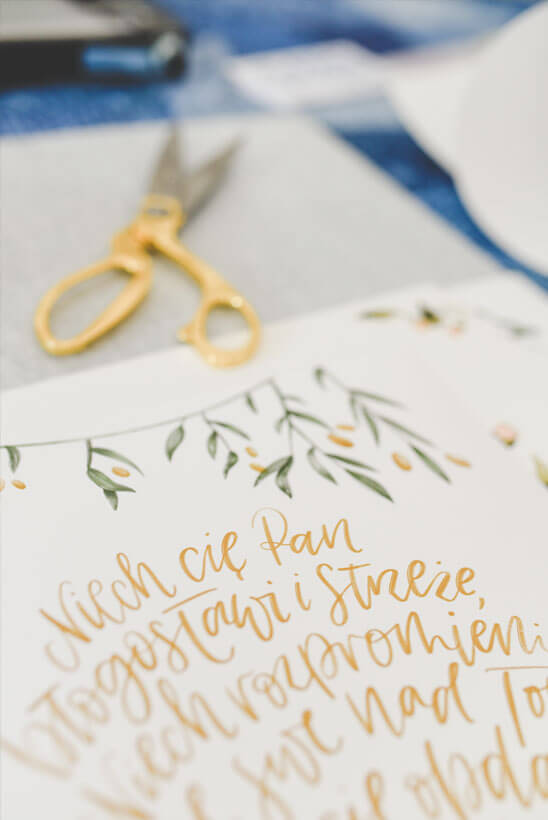 Niech cię Pan
błogosławi i strzeże,
Niech rozpromieni
swe nad